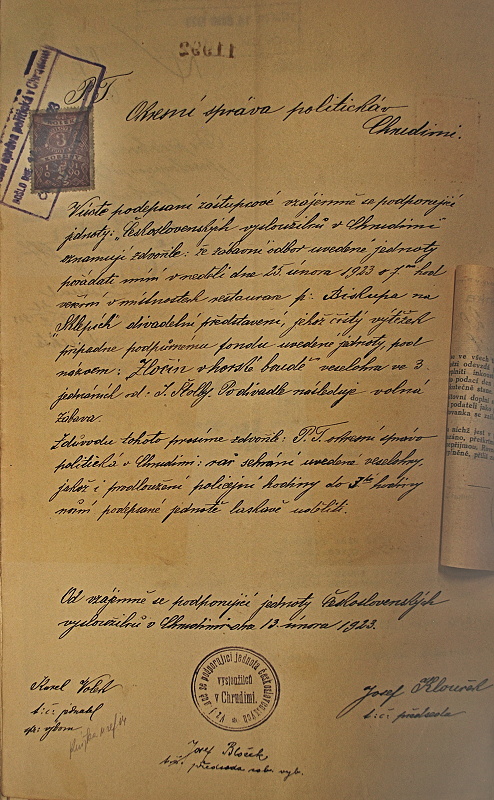 11992
P.T.
Okresní správa politická v
Chrudimi.
3
Níže podepsaní zástupcové vzájemně se podporující
jednoty: „Československých vysloužilců v Chrudimi"
oznamují zdvořile: že zábavní odbor uvedené jednoty
pořádati míní v neděli dne 25. února 1923 o 7 hod
večerní v místnostech restaurace p: Biskupa na
„Sklepích" divadelní představení, jehož čistý výtěžek
připadne podpůrnému fondu uvedené jednoty, pod
názvem: „Zločin v horské boudě" veselohra ve 3.
jednáních od: J. Štolby. Po divadle následuje volná
zábava.
Z důvodu tohoto prosíme zdvořile: P.T. okresní správo
politická v Chrudimi: račiž schváliti uvedené veselohry,
jakož i prodloužení policejní hodiny do 3 hodiny
noční podepsané jednotě laskavě uděliti.
Od vzájemně se podporující jednoty Československých
vysloužilců v Chrudimi dne 13. února 1923.
Vzájemně se podporující jednota československých
vysloužilců
v Chrudimi
Karel
t: č: jednatel
Josef
t: č: předseda
Josef
t.č. předseda zab. výb.